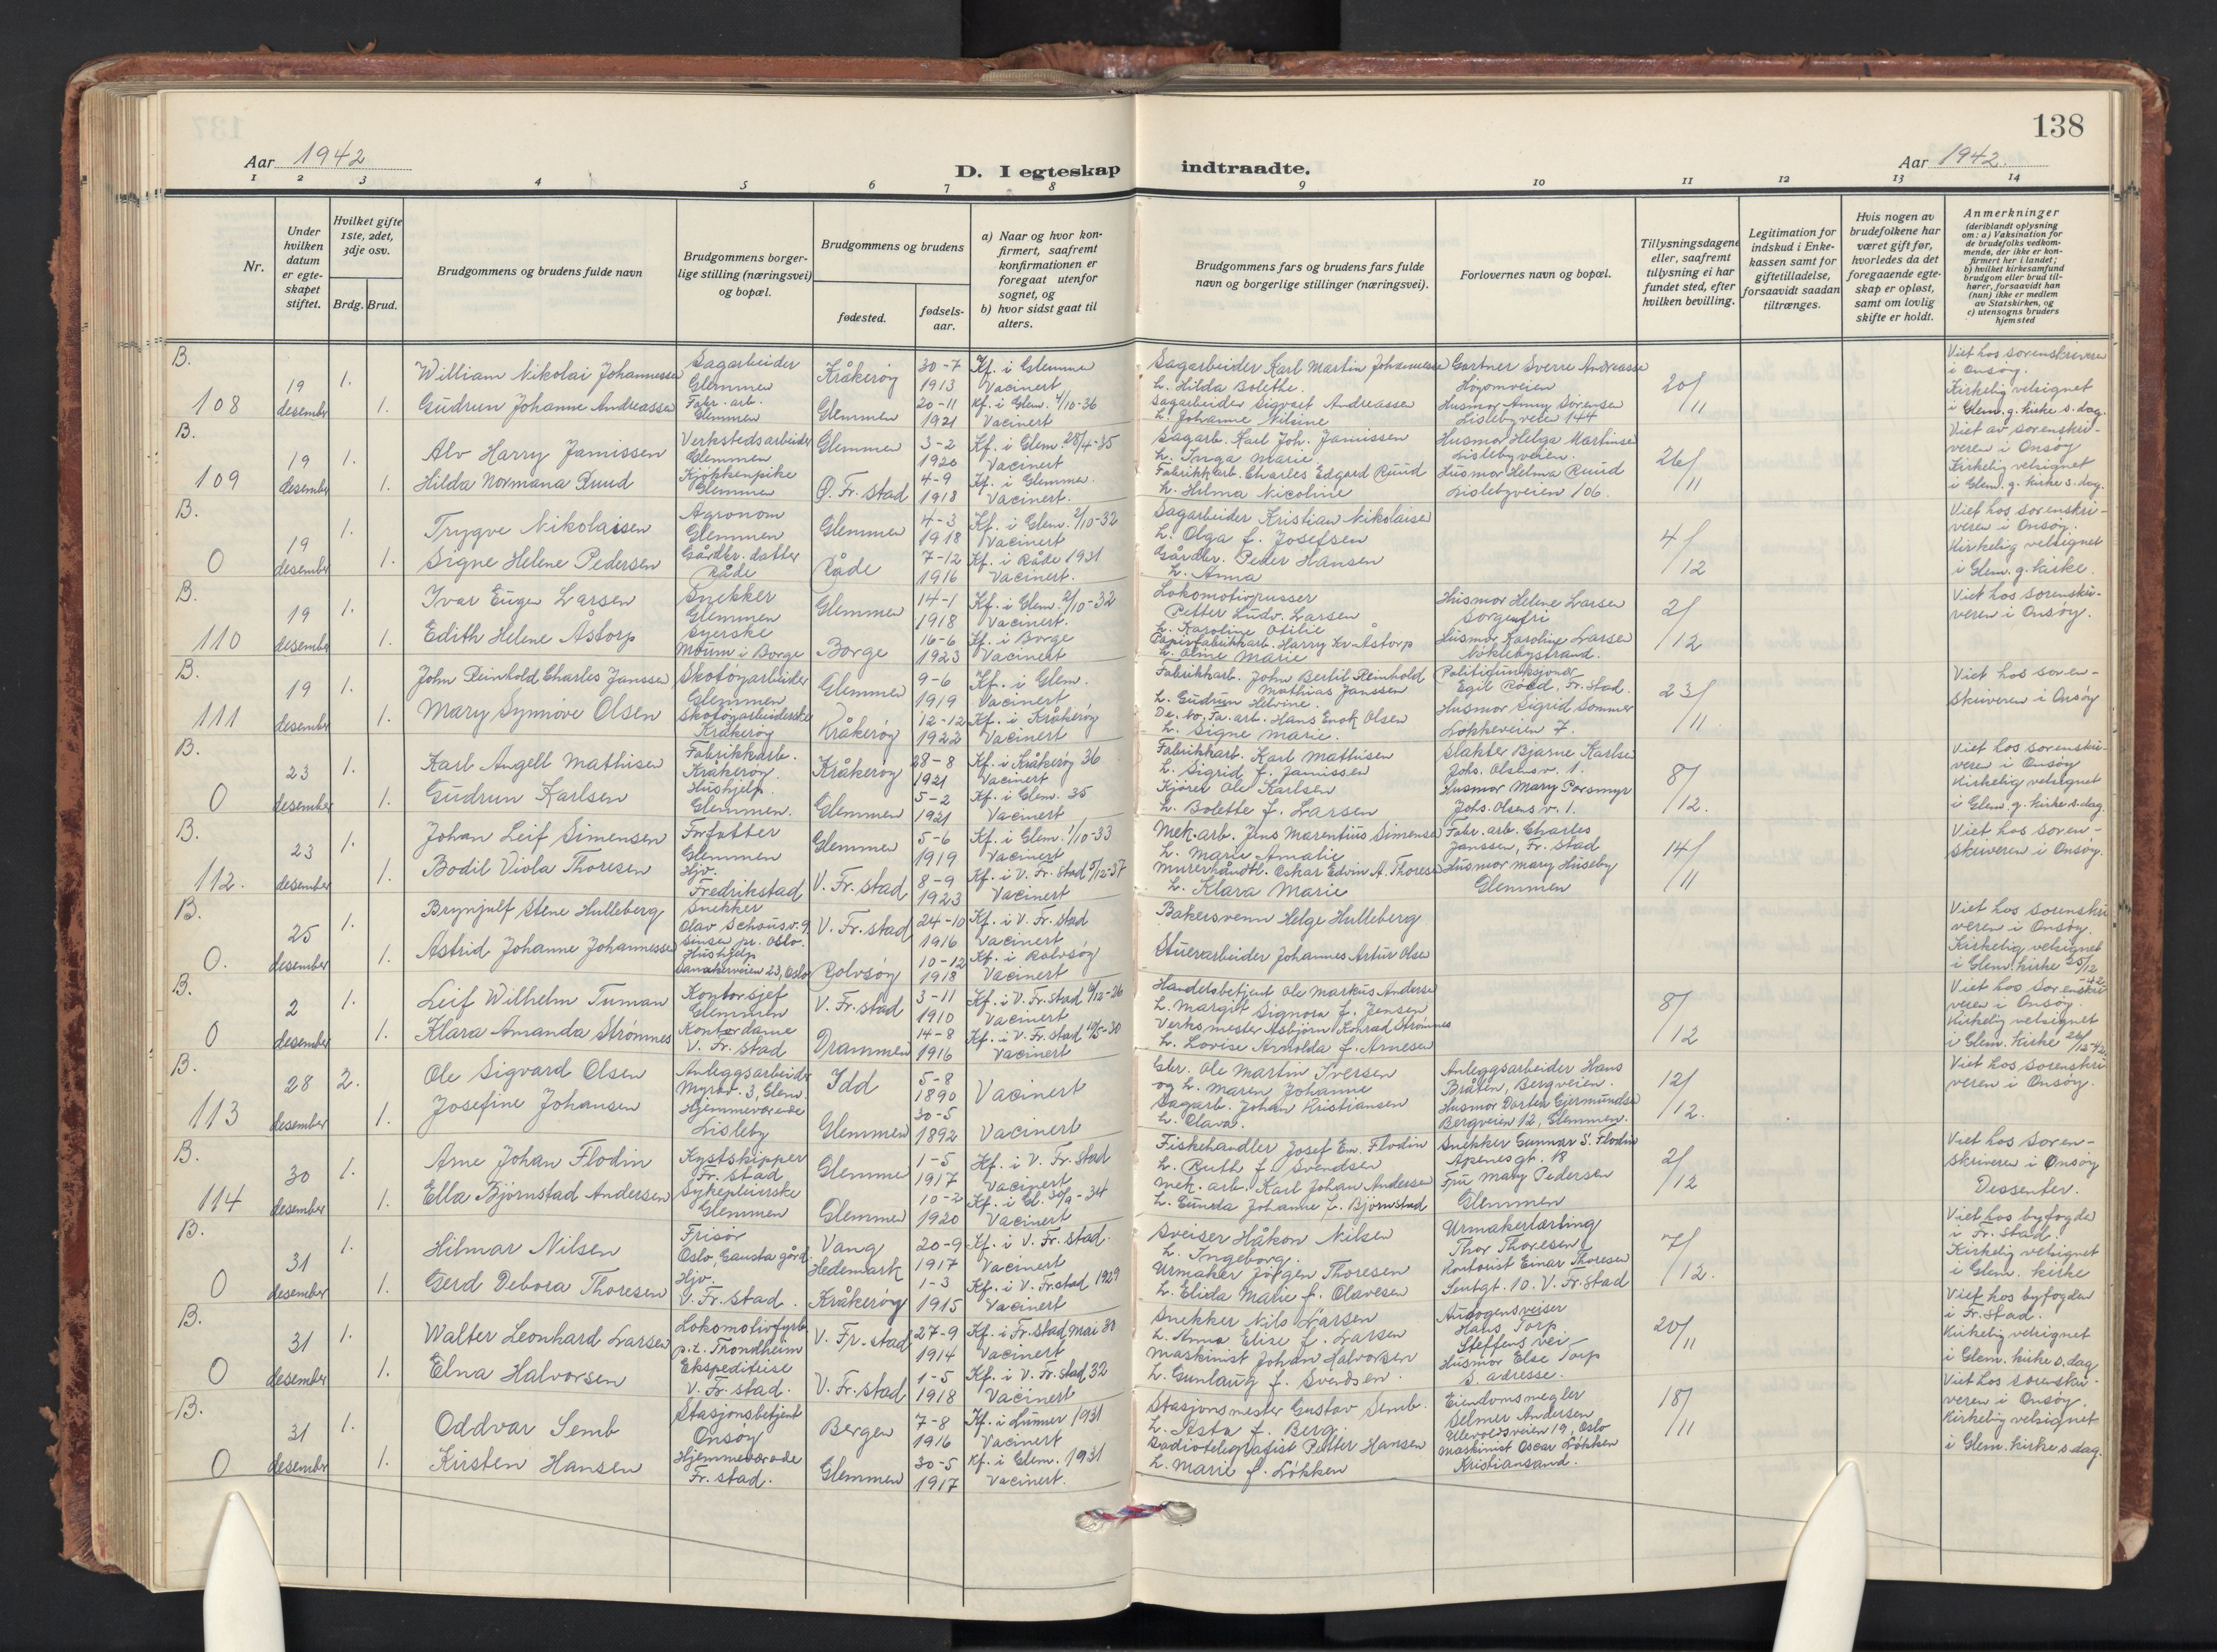 138
Aar 1942
D. I egteskap indtraadte.
Aar 1942.
1 2 3 4 5 6 7 8 9 10 11 12 13 14
Nr.
Under hvilken datum er egteskapet stiftet.
Hvilket gifte 1ste, 2det, 3dje osv.
Brdg. Brud.
Brudgommens og brudens fulde navn
Brudgommens borgerlige stilling (næringsvei) og bopæl.
Brudgommens og brudens
fødested.
fødselsaar.
a) Naar og hvor konfirmert, saafremt konfirmationen er foregaat utenfor sognet, og
b) hvor sidst gaat til alters.
Brudgommens fars og brudens fars fulde navn og borgerlige stillinger (næringsvei).
Forlovernes navn og bopæl.
Tillysningsdagene eller, saafremt tillysning ei har fundet sted, efter hvilken bevilling.
Legitimation for indskud i Enkekassen samt for giftetilladelse, forsaavidt saadan tiltrænges.
Hvis nogen av brudefolkene har været gift før, hvorledes da det foregaaende egteskap er opløst, samt om lovlig skifte er holdt.
Anmerkninger (deriblandt oplysning om: a) Vaksination for de brudefolks vedkommende, der ikke er konfirmert her i landet; b) hvilket kirkesamfund brudgom eller brud tilhører, forsaavidt han (hun) ikke er medlem av Statskirken, og c) utensogns bruders hjemsted
B. 108 19 desember 1. 1.
William Nikolai Johannessen Sagarbeider Glemmen Kråkerøy 30-7 1913 Kf. i Glemmen Vacinert
Gudrun Johanne Andreassen Fabr. arb. Glemmen Glemmen 20-11 1921 Kf. i Glem. 4/10-36 Vacinert
Sagarbeider Karl Martin Johannessen h. Hilda Bolethe. Gartner Sverre Andreassen
Sagarbeider Sigvart Andreassen h. Johanne Nilsine Husmor Anny Sørensen Lislebyveien 144
20/11
Viet hos sorenskriveren i Onsøy. Kirkelig velsignet i Glem. g. kirke s. dag.
B. 109 19 desember 1. 1.
Alv Harry Jamissen Verkstedsarbeider Glemmen Glemmen 3-2 1920 Kf. i Glem. 28/4-35 Vacinert
Hilda Normana Ruud Kjøkkenpike Glemmen Ø. Fr. stad 4-9 1918 Kf. i Glemmen. Vacinert.
Sagarb. Karl Joh. Jamissen h. Inga Marie Husmor Helga Martinsen Lislebyveien.
Fabrikkarb. Charles Edgard Ruud h. Hilma Nicoline Husmor Helma Ruud Lislebyveien 106.
26/11
Viet av sorenskriveren i Onsøy Kirkelig velsignet i Glem. g. kirke s. dag.
B. 0 19 desember 1. 1.
Trygve Nikolaisen Agronom Glemmen Glemmen 4-3 1918 Kf. i Glem. 2/10-32 Vacinert
Signe Helene Pedersen Gårdbr. datter Råde Råde 7-12 1916 Kf. i Råde 1931 Vacinert.
Sagarbeider Kristian Nikolaisen h. Olga f. Josefsen
Gårdbr. Peder Hansen h. Anna
4/12
Viet hos sorenskriveren i Onsøy. Kirkelig velsignet i Glem. g. kirke.
B. 110 19 desember 1. 1.
Ivar Eugen Larsen Snekker Glemmen Glemmen 14-1 1918 Kf. i Glem. 2/10-32 Vacinert.
Edith Helene Åstorp Syerske Moum i Borge Borge 16-6 1923 Kf. i Borge Vacinert
Lokomotivpusser Petter Ludv. Larsen h. Karoline Otilie Husmor Helene Larsen Sorgenfri
Papirfabrikkarb. Harry Kr. Åstorp h. Oline Marie Husmor Karoline Larsen Nøklebystrand.
2/12
Viet hos sorenskriveren i Onsøy.
B. 111 19 desember 1. 1.
John Reinhold Charles Janssen Skotøyarbeider Glemmen Glemmen 9-6 1919 Kf. i Glem. Vacinert
Mary Synnøve Olsen Skotøyarbeiderske Kråkerøy Kråkerøy 12-12 1922 Kf. i Kråkerøy Vacinert
Fabrikkarb. John Bertil Reinhold Mathias Janssen h. Gudrun Helvine. Politifunksjonær Egil Röed, Fr. stad.
De. No. Ta. arb. Hans Enok Olsen h. Signe Marie. Husmor Sigrid Sommer Løkkeveien 7.
23/11
Viet hos sorenskriveren i Onsøy
B. 0 23 desember 1. 1.
Karl Angell Mathisen Fabrikkarb. Kråkerøy. Kråkerøy 28-8 1921 Kf. i Kråkerøy 36 Vacinert
Gudrun Karlsen Hushjelp. Glemmen. Glemmen 5-2 1921 Kf. i Glem. 35 Vacinert
Fabrikkarb. Karl Mathisen h. Sigrid f. Jamissen Slakter Bjarne Karlsen Johs. Olsensv. 1.
Kjører Ole Karlsen h. Bolette f. Larsen Husmor Mary Porsmyr Johs. Olsens v. 1.
8/12.
Viet hos sorenskriveren i Onsøy Kirkelig velsignet i Glem. g. kirke s. dag.
B. 112. 23 desember 1. 1.
Johan Leif Simensen Forfatter Glemmen Glemmen 5-6 1919 Kf. i Glem. 1/10-33 Vacinert
Bodil Viola Thoresen Hjv. Fredrikstad V. Fr. stad 8-9 1923 Kf. i V. Fr. stad 5/12-37 Vacinert
Mek. arb. Jens Marentius Simensen h. Marie Amalie Fabr. arb. Charles Janssen, Fr. stad
Murerhåndtl. Oskar Edvin A. Thoresen h. Klara Marie Husmor Mary Huseby Glemmen
14/11
Viet hos sorenskriveren i Onsøy.
B. 0. 25 desember 1. 1.
Brynjulf Stene Hulleberg Snekker Olav Schousv. 9 Sinsen pr. Oslo. V. Fr. stad 24-10 1916 Kf. i V. Fr. stad Vacinert
Astrid Johanne Johannessen Hushjelp Sandakerveien 23, Oslo Rolvsøy 10-12 1918 Kf. i Rolvsøy Vacinert
Bakersvenn Helge Hulleberg
Stuerarbeider Johannes Artur Olsen
Viet hos sorenskriveren i Onsøy. Kirkelig velsignet i Glem. kirke 25/12 42
B. 0 2 desember 1. 1.
Leif Wilhelm Tuman Kontorsjef Glemmen V. Fr. stad 3-11 1910 Kf. i V. Fr. stad 4/12-26 Vacinert
Klara Amanda Strømnes Kontordame V. Fr. stad Drammen 14-8 1916 Kf. i V. Fr. stad 19/5-30 Vacinert
Handelsbetjent Ole Markus Andersen h. Margit Signora f. Jensen
Verksmester Asbjørn Konrad Strømnes h. Lovise Arnolda f. Arnesen
8/12
Viet hos sorenskriveren i Onsøy. Kirkelig velsignet i Glem. kirke 26/12-42.
B. 113 28 desember 2. 1.
Ole Sigvard Olsen Anleggsarbeider Myrav. 3, Glem. Idd 5-8 1890 Vacinert
Josefine Johansen Hjemmeværende Lisleby Glemmen 30-5 1892 Vacinert
Gbr. Ole Martin Iversen og h. Maren Johanne Anleggsarbeider Hans Bråten, Bergveien.
Sagarb. Johan Kristiansen h. Olava. Husmor Dorten Gjermundsen Bergveien 12, Glemmen.
12/12.
Viet hos sorenskriveren i Onsøy.
B. 114 30 desember 1. 1.
Arne Johan Flodin Kystskipper Fr. stad Glemmen 1-5 1917 Kf. i V. Fr. stad Vacinert
Ella Bjørnstad Andersen Sykepleierske Glemmen Glemmen 10-2 1920 Kf. i Gl. 30/9-34 Vacinert
Fiskehandler Josef Em. Flodin h. Ruth f. Svendsen Snekker Gunnar S. Flodin Apenesgt. 18
Mek. arb. Karl Johan Andersen h. Gunda Johanne f. Bjørnstad Fru Mary Pedersen Glemmen
2/12
Viet hos sorenskriveren i Onsøy Dissenter.
B. 0 31 desember 1. 1.
Hilmar Nilsen Frisør Oslo, Gausta gård. Vang Hedemark 20-9 1917 Kf. i V. Fr. stad. Vacinert
Gerd Debora Thoresen Hjv. V. Fr. stad. Kråkerøy 1-3 1915 Kf. i V. Fr. stad 1929 Vacinert
Sveiser Håkon Nilsen h. Ingeborg. Urmakerlærling Thor Thoresen
Urmaker Jörgen Thoresen h. Elida Marie f. Olavesen Kontorist Einar Thoresen 10. V. Fr. stad
7/12.
Viet hos byfogden i Fr. stad. Kirkelig velsignet i Glem. kirke
B. 0 31 desember 1. 1.
Walter Leonhard Larsen Lokomotivfyrb. p.t. Trondheim V. Fr. stad 27-9 1914 Kf. i Fr. stad, Mai 30 Vacinert
Elna Halvorsen Ekspeditrise V. Fr. stad. V. Fr. stad 1-5 1918 Kf. i V. Fr. stad, 32 Vacinert
Snekker Nils Larsen h. Anna Elise f. Larsen Autogensveiser Hans Torp Steffens vei
Maskinist Johan Halvorsen h. Gunlaug f. Svendsen. Husmor Else Torp S. adresse.
20/11
Viet hos byfogden i Fr. stad. Kirkelig velsignet i Glem. kirke s. dag
B. 0 31 desember 1. 1.
Oddvar Semb Stasjonsbetjent Onsøy Bergen 7-8 1916 Kf. i Lunner 1931 Vacinert
Kirsten Hansen Hjemmeværende Fr. stad. Glemmen 30-5 1917 Kf. i Glem. 1931 Vacinert.
Stasjonsmester Gustav Semb. h. Asta f. Berg. Eiendomsmegler Selmer Andersen Ullevoldsveien 19, Oslo
Radiotelegrafist Petter Hansen h. Marie f. Løkken Maskinist Oscar Løkken Kristiansand.
18/11
Viet hos sorenskriveren i Onsøy. Kirkelig velsignet i Glem. kirke s. dag.